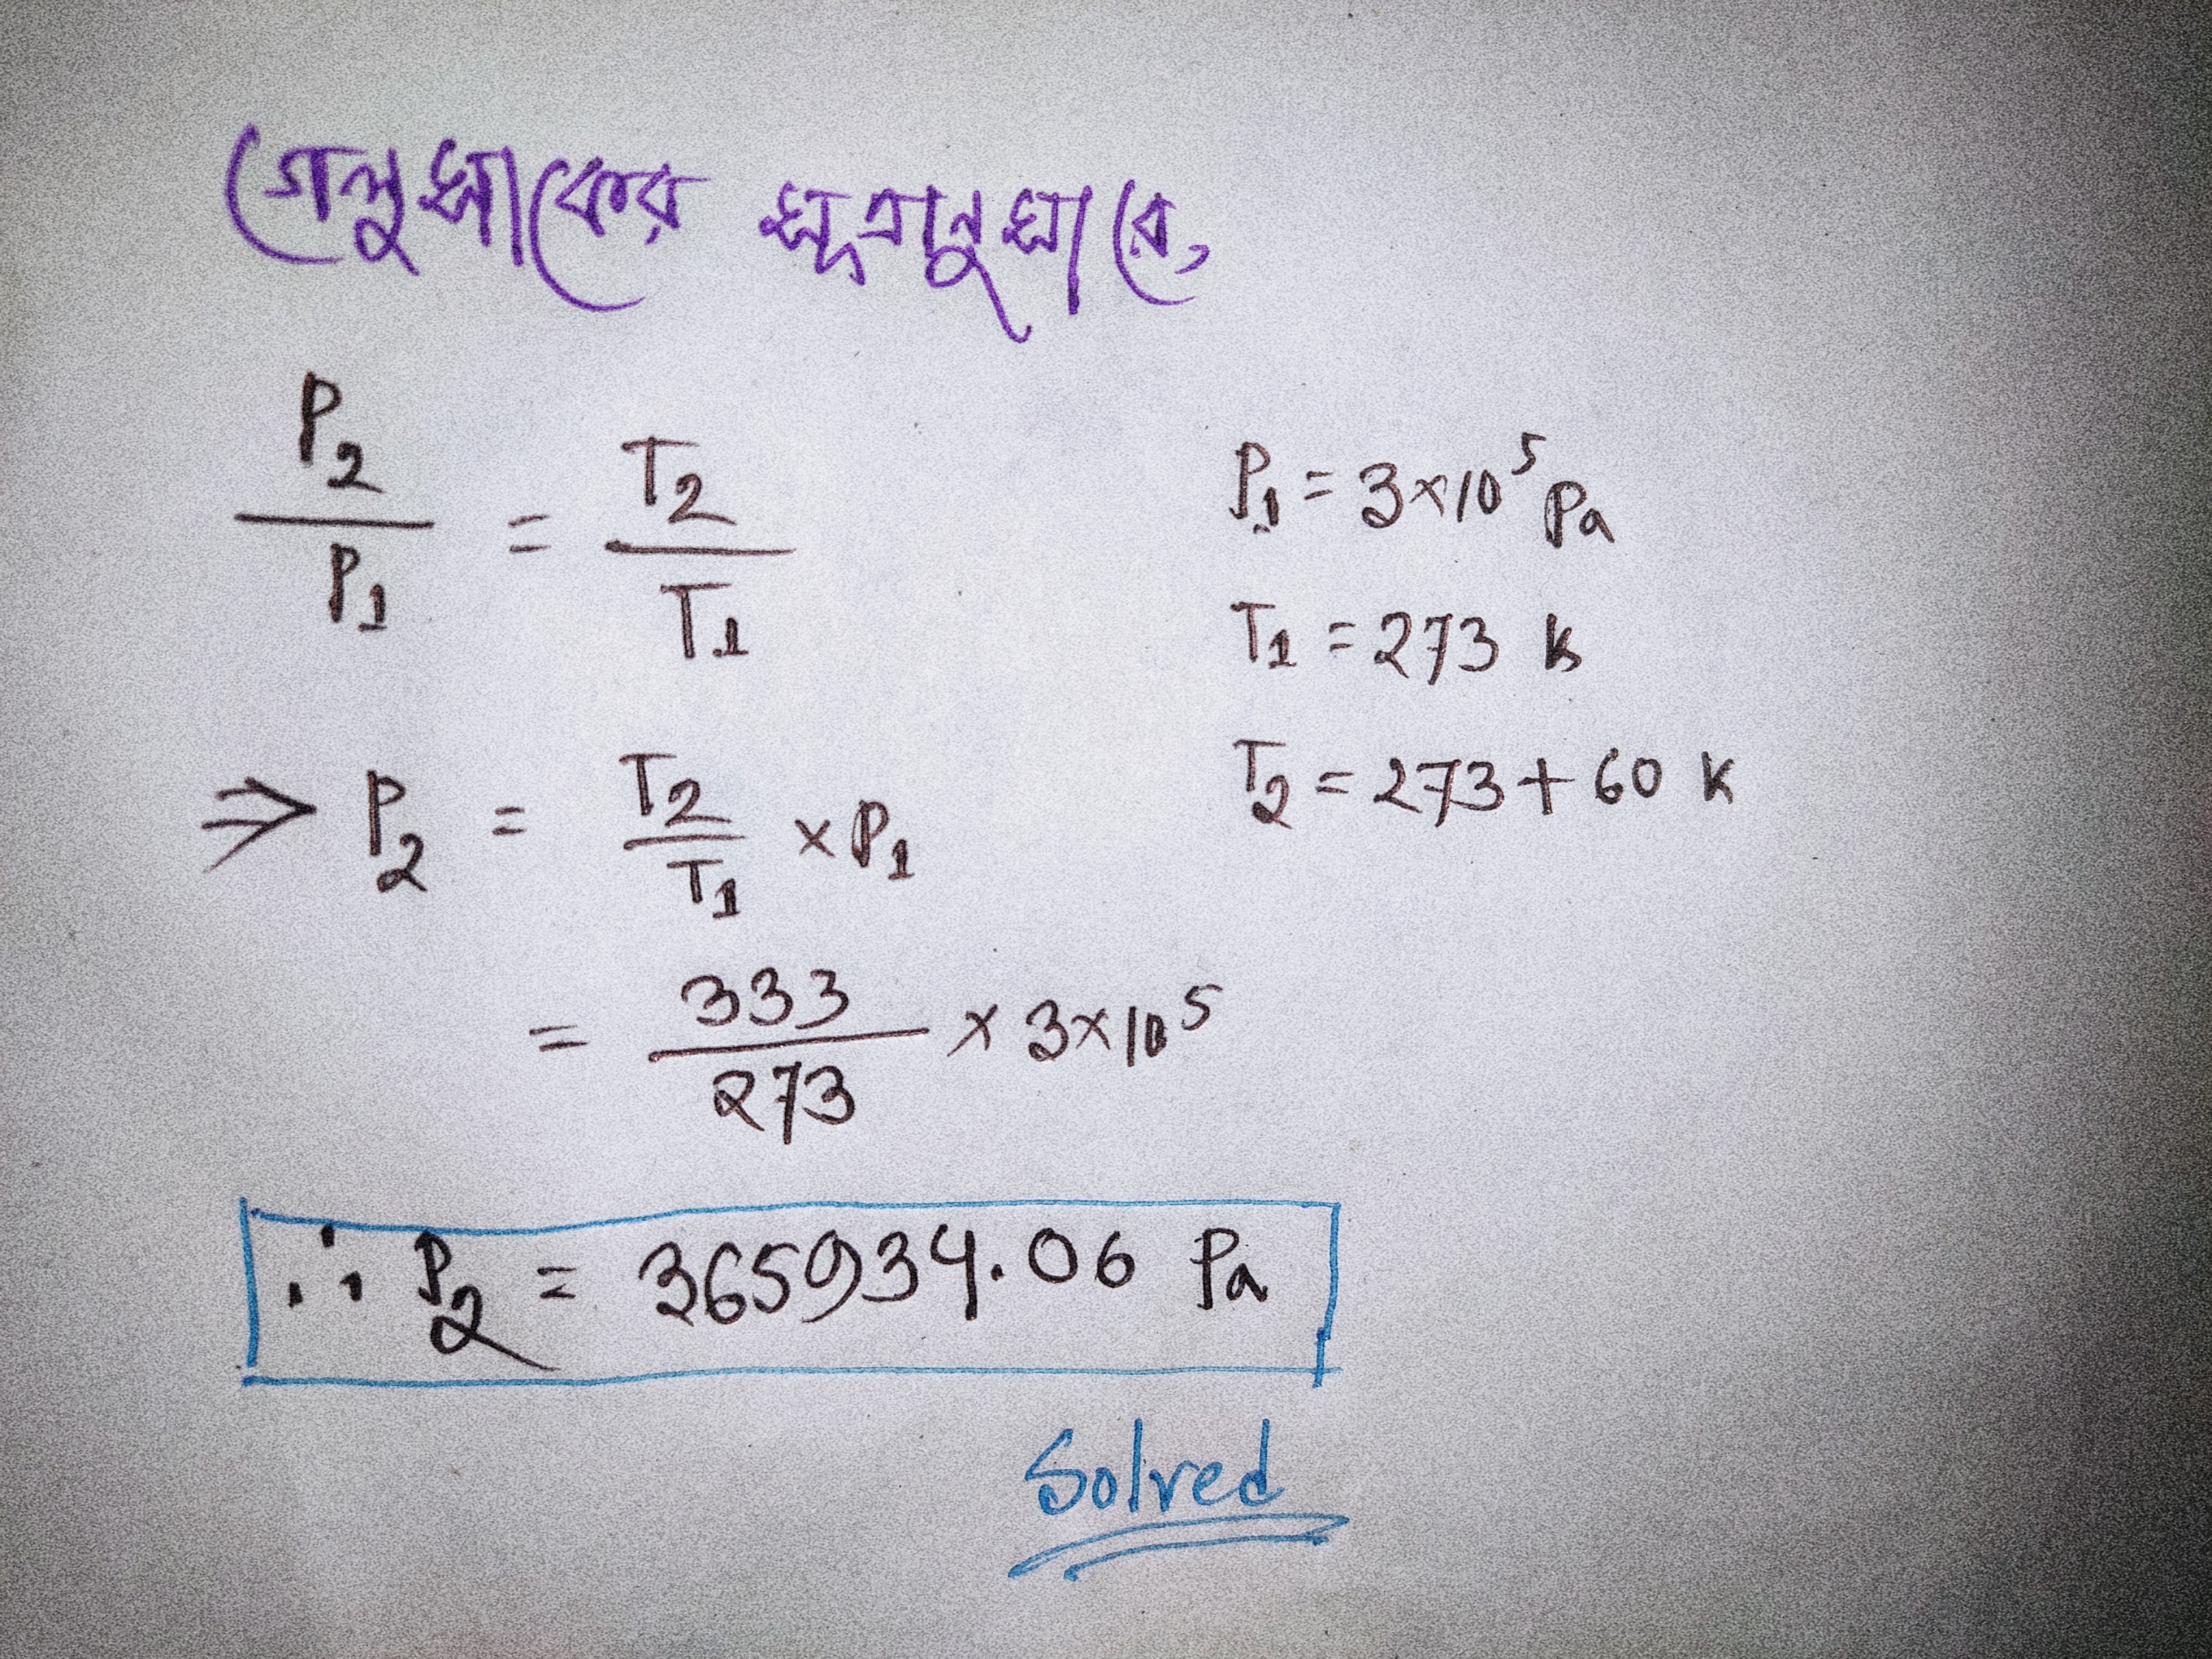 গেলুসাকের সূত্রানুসারে,
P₂/P₁ = T₂/T₁
P₁ = 3×10⁵ Pa
T₁ = 273 K
T₂ = 273 + 60 K
⇒ P₂ = T₂/T₁ × P₁
= 333/273 × 3×10⁵
∴ P₂ = 365934.06 Pa
Solved